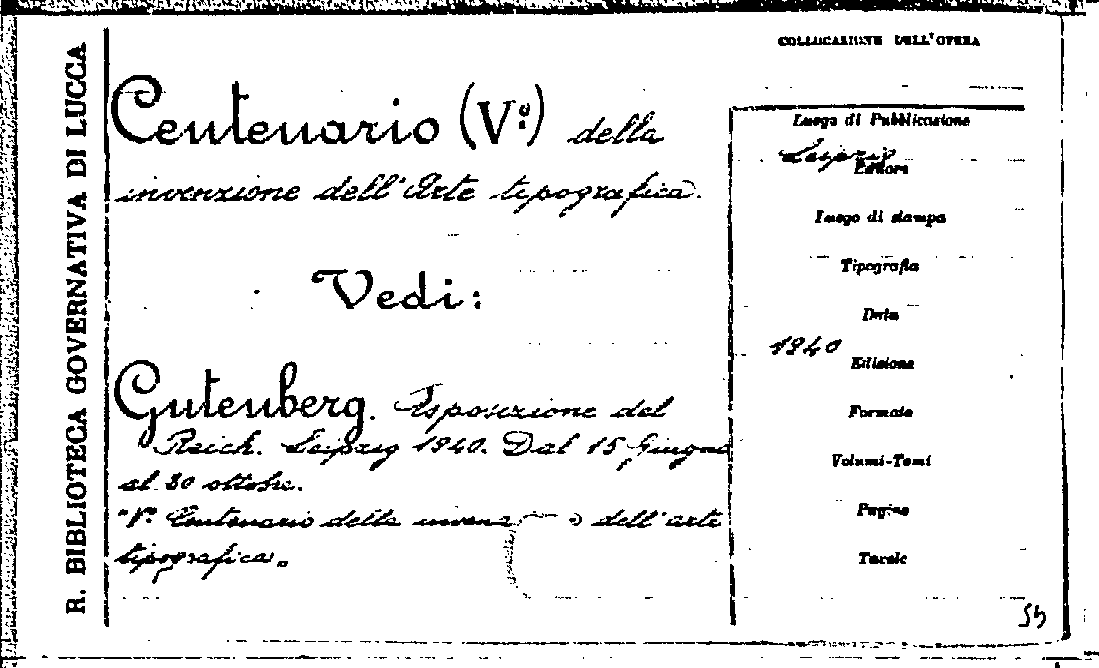 R. BIBLIOTECA GOVERNATIVA DI LUCCA
Centenario (V°) della
invenzione dell'Arte tipografica.
Vedi:
Gutenberg. Esposizione del
Reich. Leipzig 1940. Dal 15 Giugno
al 30 ottobre.
"V° Centenario della dell'arte
tipografica.
COLLOCAZIONE DELL'OPERA
Luogo di Pubblicazione
Leipzig
Editore
Luogo di stampa
Tipografia
Data
1940
Edizione
Formato
Volumi-Tomi
Pagine
Tavole